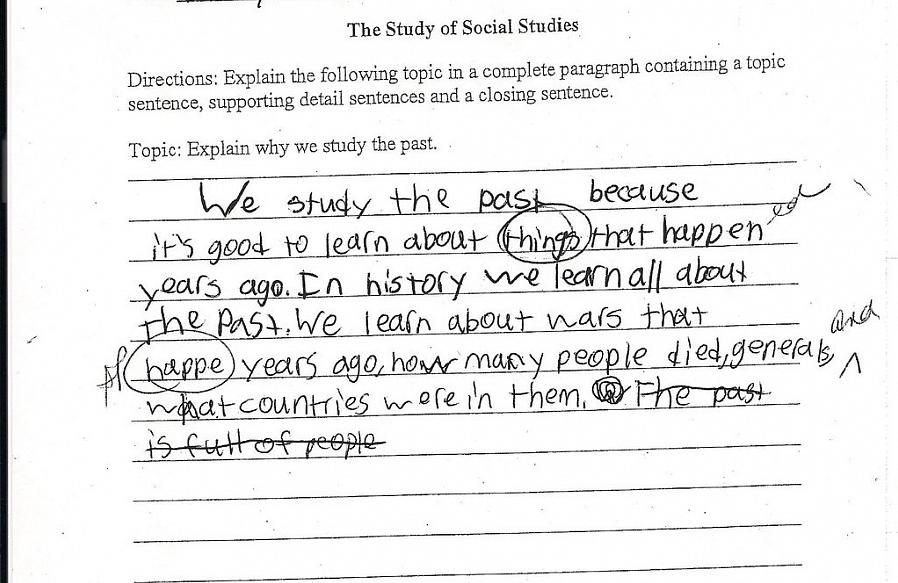 The Study of Social Studies
Directions: Explain the following topic in a complete paragraph containing a topic
sentence, supporting detail sentences and a closing sentence.
Topic: Explain why we study the past.
We study the past because
it's good to learn about things that happen ed
years ago. In history we learn all about
the Past. We learn about wars that
happe years ago, how many people died, generals, and
what countries were in them. The past
is full of people